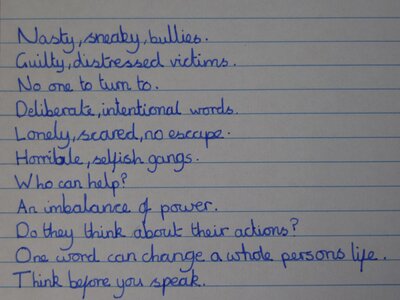 Nasty, sneaky, bullies.
Guilty, distressed victims.
No one to turn to.
Deliberate, intentional words.
Lonely, scared, no escape.
Horrible, selfish gangs.
Who can help?
An imbalance of power.
Do they think about their actions?
One word can change a whole persons life.
Think before you speak.